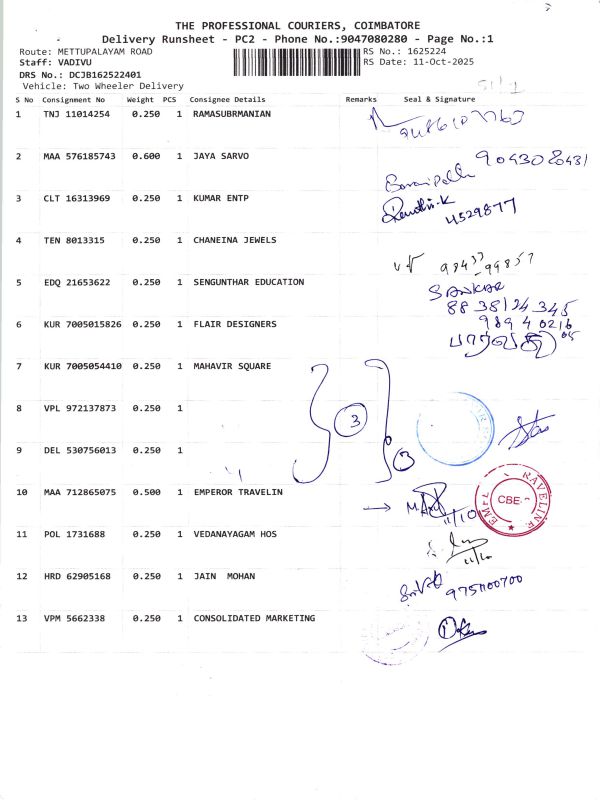 THE PROFESSIONAL COURIERS, COIMBATORE
Delivery Runsheet - PC2 - Phone No.:9047080280 - Page No.:1
Route: METTUPALAYAM ROAD RS No.: 1625224
Staff: VADIVU RS Date: 11-Oct-2025
DRS No.: DCJB162522401
Vehicle: Two Wheeler Delivery
S No Consignment No Weight PCS Consignee Details Remarks Seal & Signature
1 TNJ 11014254 0.250 1 RAMASUBRMANIAN
2 MAA 576185743 0.600 1 JAYA SARVO 9043080431
3 CLT 16313969 0.250 1 KUMAR ENTP
4529877
4 TEN 8013315 0.250 1 CHANEINA JEWELS
98437 99857
5 EDQ 21653622 0.250 1 SENGUNTHAR EDUCATION SANKAR
88 38124 345
6 KUR 7005015826 0.250 1 FLAIR DESIGNERS 989 4 0216
05
பார்வதி
7 KUR 7005054410 0.250 1 MAHAVIR SQUARE
8 VPL 972137873 0.250 1 3
9 DEL 530756013 0.250 1 3
10 MAA 712865075 0.500 1 EMPEROR TRAVELIN 11/10 CBE
11 POL 1731688 0.250 1 VEDANAYAGAM HOS
11/10
12 HRD 62905168 0.250 1 JAIN MOHAN 9751100700
13 VPM 5662338 0.250 1 CONSOLIDATED MARKETING